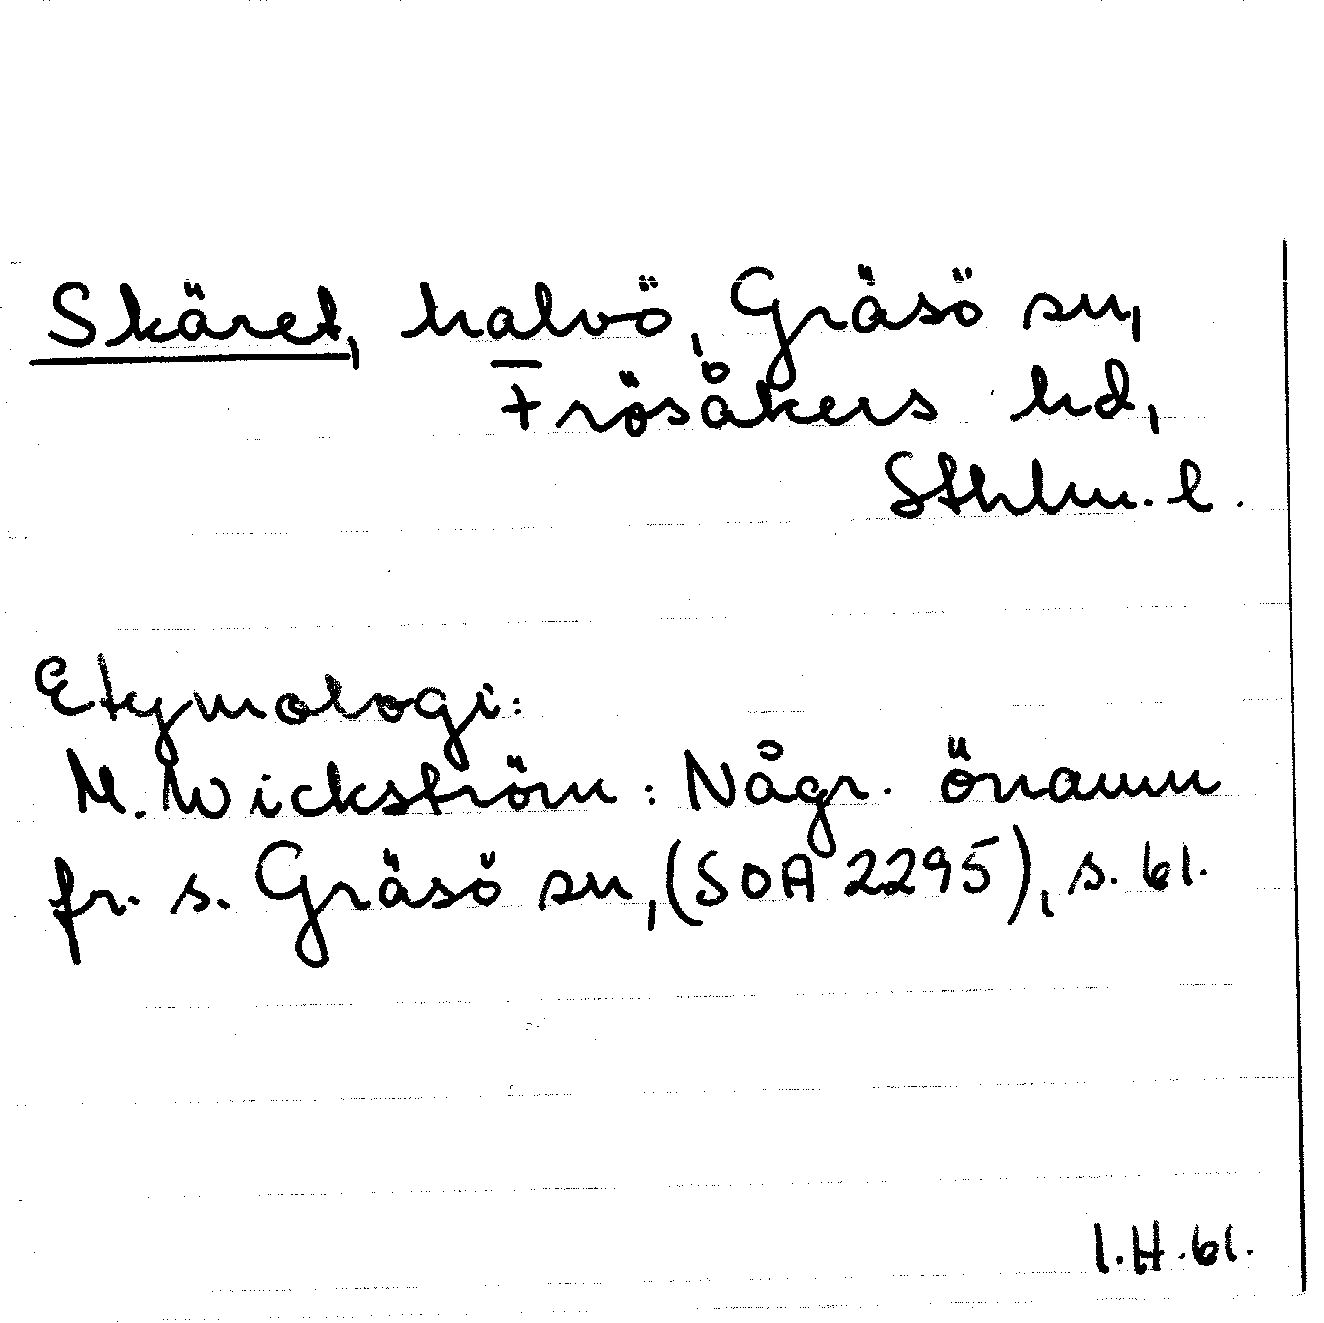 Skäret, halvö, Gräsö sn,
Frösåkers hd,
Sthlm. l.
Etymologi:
M. Wickström: Någr. önamn
fr. s. Gräsö sn, (SOA 2295), s. 61.
I.H. 61.